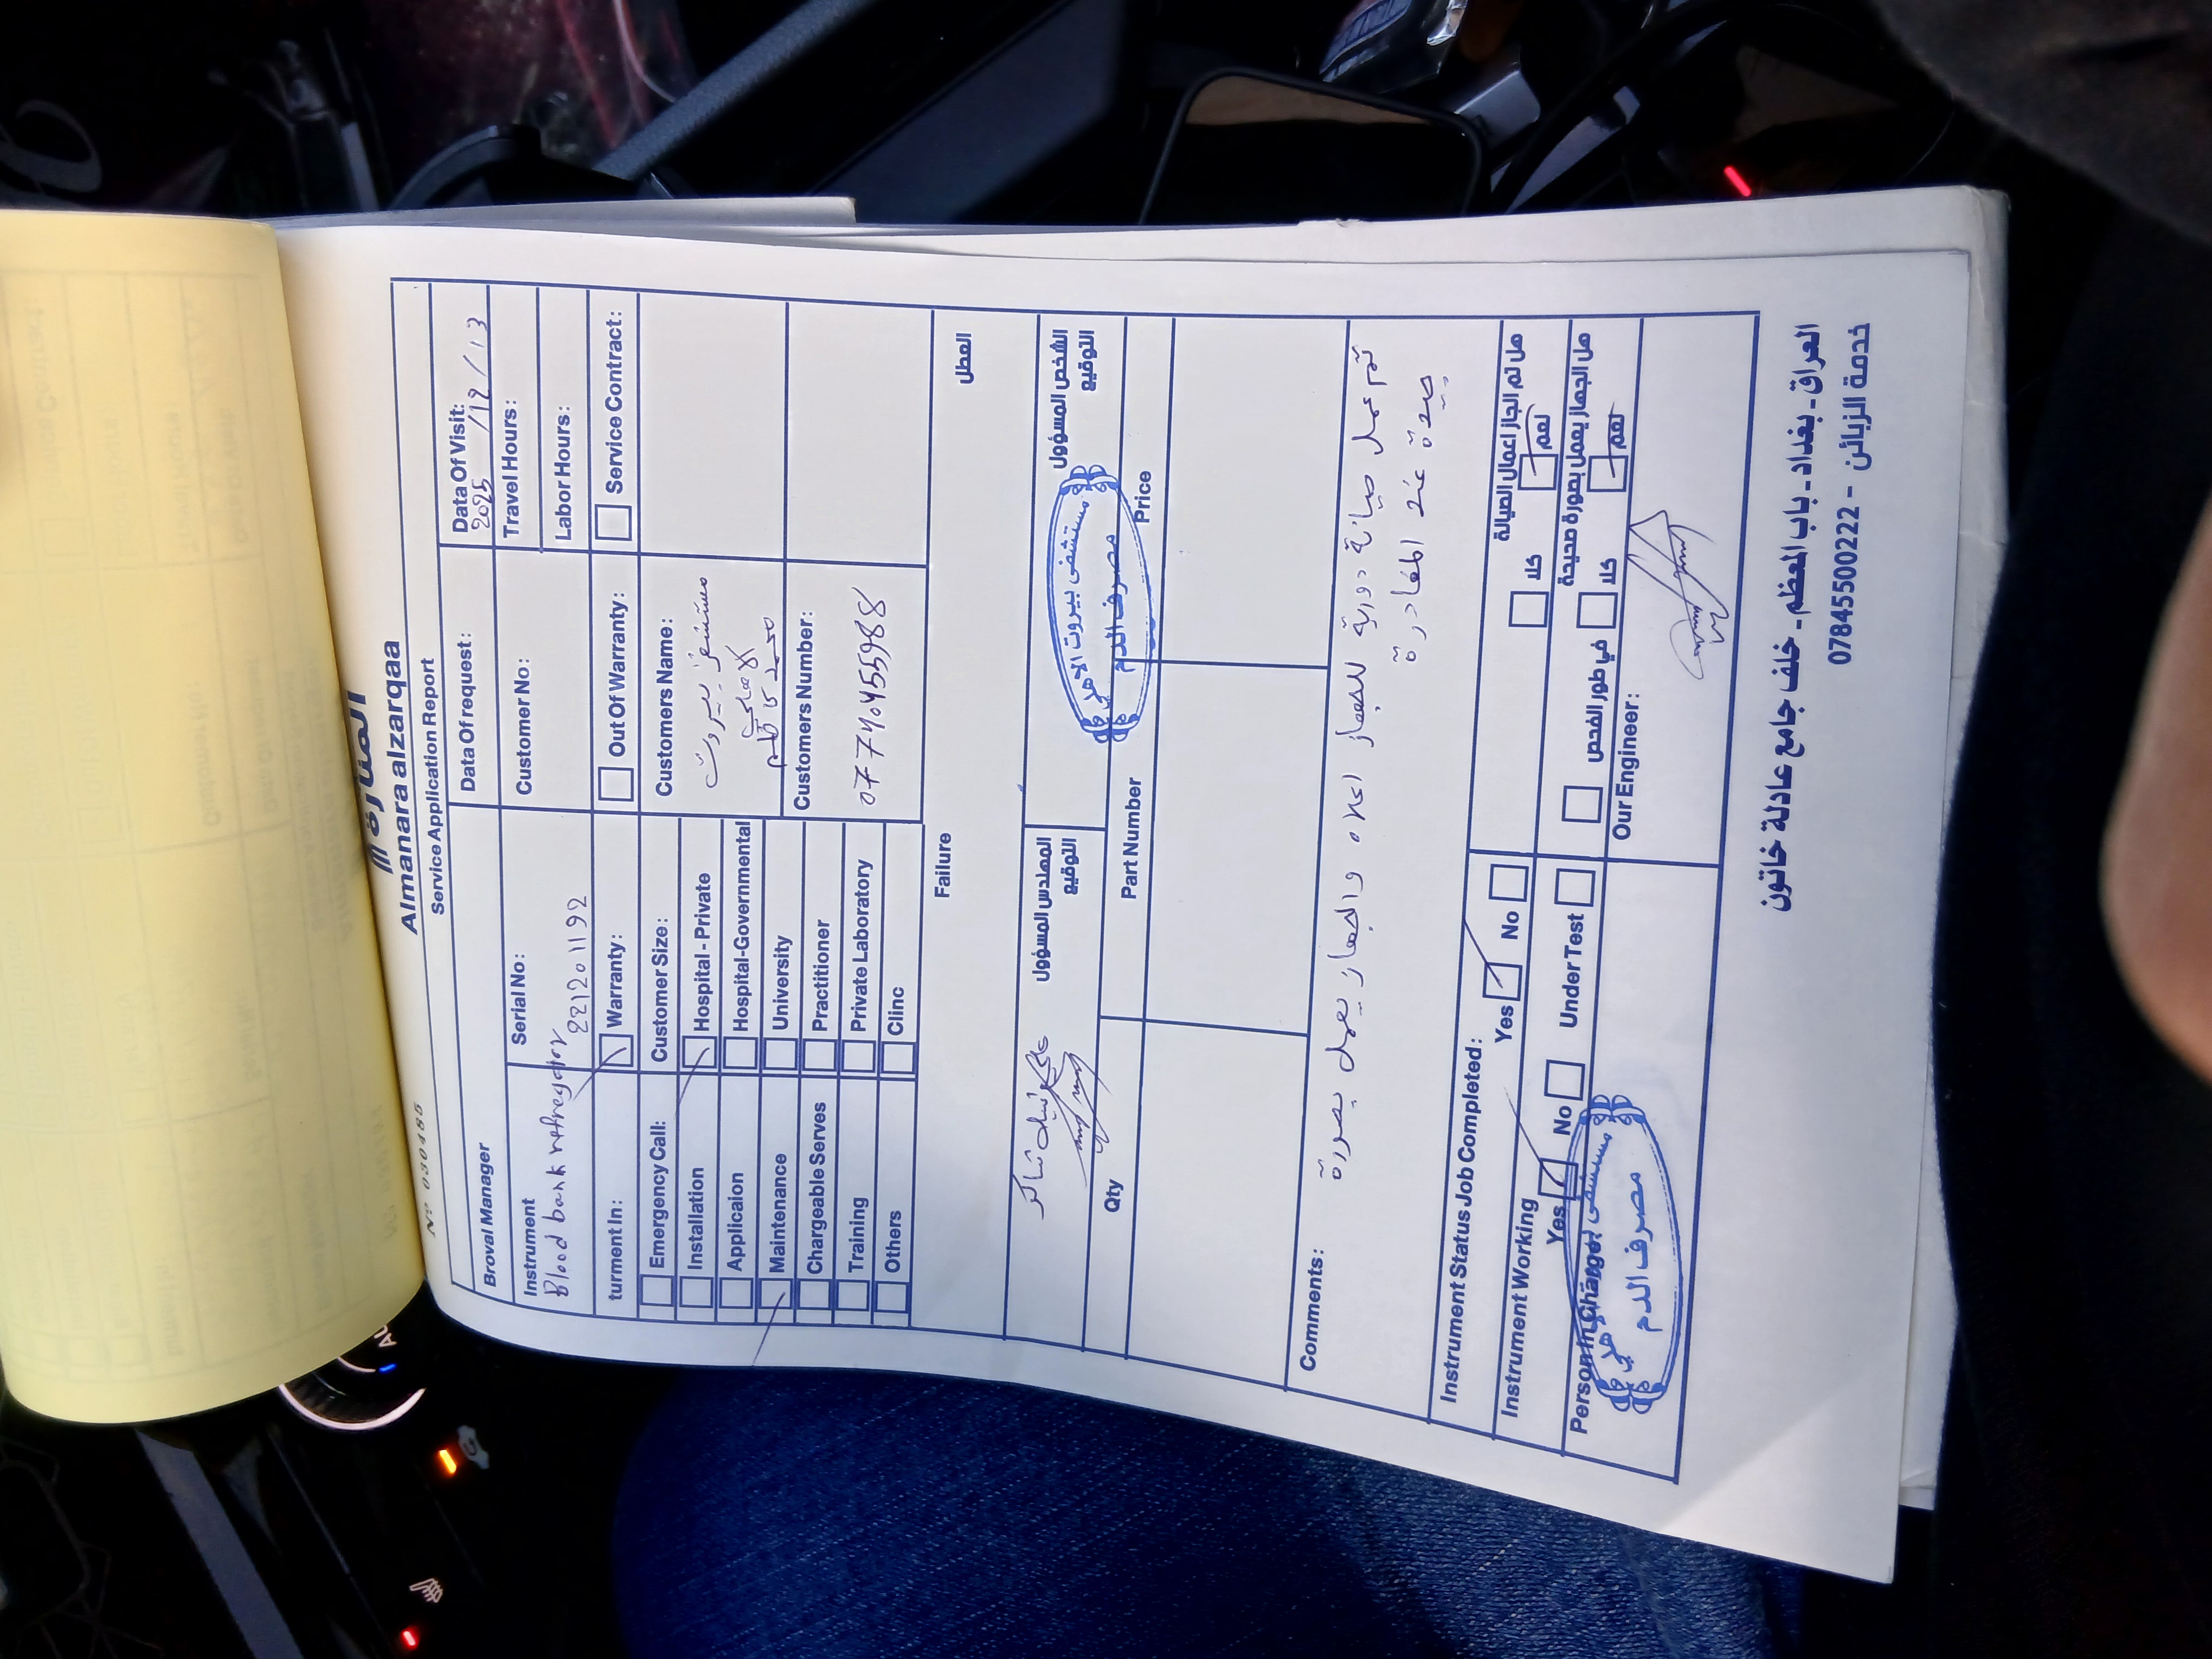 المنارة
Almanara alzarqaa
Service Application Report
Nº 030485
Broval Manager
Data Of request:
Data Of Visit:
2025/12/13
Instrument
Blood bank refregator
Serial No:
221201192
Customer No:
Travel Hours:
Labor Hours:
turment In:
Warranty:
Out Of Warranty:
Service Contract:
Emergency Call:
Installation
Applicaion
Maintenance
Chargeable Serves
Training
Others
Customer Size:
Hospital - Private
Hospital-Governmental
University
Practitioner
Private Laboratory
Clinc
Customers Name:
مستشفى بيروت
الاهلي
محمد كاظم
Customers Number:
07740455988
Failure
العطل
المهندس المسؤول
التوقيع
الشخص المسؤول
التوقيع
مستشفى بيروت الاهلي
مصرف الدم
Qty
Part Number
Price
Comments:
تم عمل صيانة دورية للجهاز اعلاه والجهاز يعمل بصورة
جيدة عند المغادرة
Instrument Status Job Completed:
Yes
No
هل تم انجاز اعمال الصيانة
نعم
كلا
Instrument Working
Yes
No
Under Test
هل الجهاز يعمل بصورة صحيحة
نعم
كلا
في طور الفحص
Person In Charge:
مستشفى بيروت الاهلي
مصرف الدم
Our Engineer:
العراق - بغداد - باب المعظم - خلف جامع عادلة خاتون
خدمة الزبائن - 07845500222